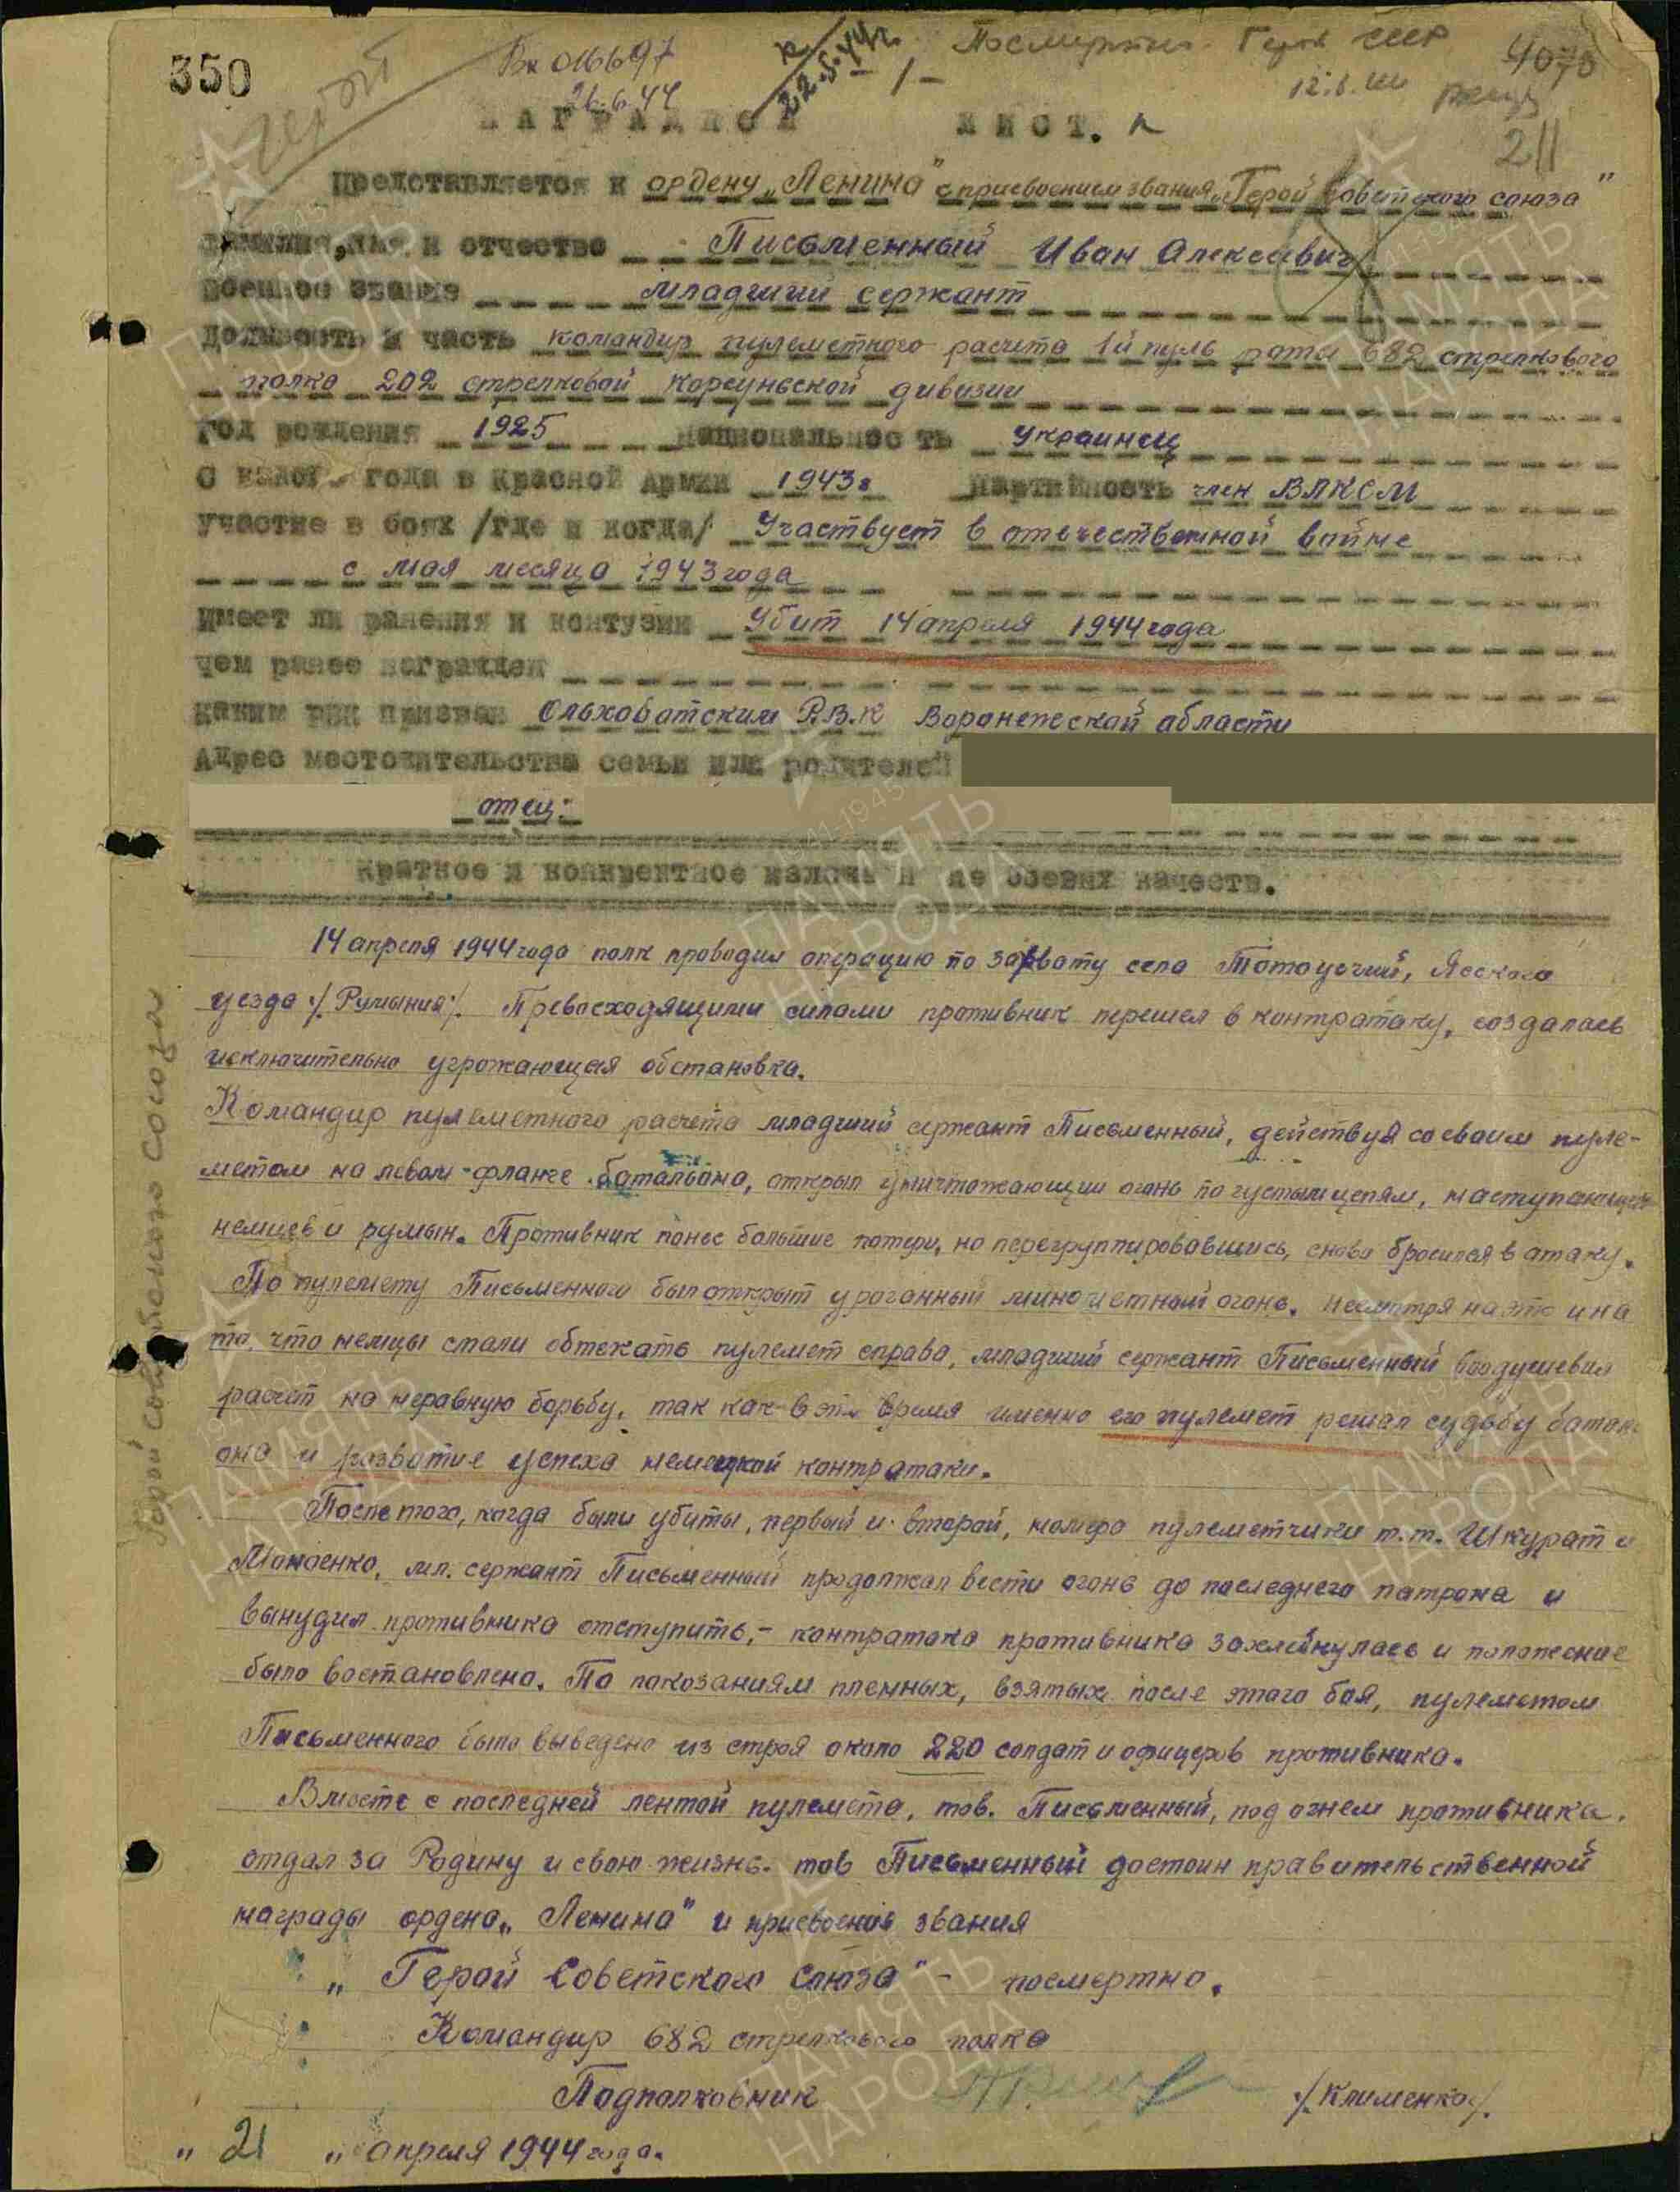 350
герой
Вх 016697
26.6.44
22.5.44г.
- 1 -
Посмертно. Герой СССР
12.6.44
4070
211
НАГРАДНОЙ ЛИСТ.
Представляется к ордену „Ленина" с присвоением звания „Герой Советского союза"
Фамилия, имя и отчество Письменный Иван Алексеевич
Военное звание младший сержант
Должность и часть командир пулеметного расчета 1й пуль роты 682 стрелкового
полка 202 стрелковой Корсуньской дивизии
Год рождения 1925 Национальность украинец
С какого года в Красной Армии 1943г Партийность член ВЛКСМ
Участие в боях /где и когда/ Участвует в отечественной войне
с мая месяца 1943 года
Имеет ли ранения и контузии Убит 14 апреля 1944 года
чем ранее награжден
каким РВК призван Ольховатским Р.В.К Воронежской области
Адрес местожительства семьи или родителей
отец:
Краткое и конкретное изложение боевых качеств.
14 апреля 1944 года полк проводил операцию по захвату села Тотоуечий, Ясского
уезда /Румыния/. Превосходящими силами противник перешел в контратаку, создалась
исключительно угрожающая обстановка.
Командир пулеметного расчета младший сержант Письменный, действуя со своим пуле-
метом на левом фланге батальона, открыл уничтожающий огонь по густым цепям, наступающих
немцев и румын. Противник понес большие потери, но перегруппировавшись, снова бросился в атаку.
По пулемету Письменного был открыт ураганный минометный огонь. Несмотря на это и на
то, что немцы стали обтекать пулемет справа, младший сержант Письменный воодушевил
расчет на неравную борьбу, так как в это время именно его пулемет решал судьбу батальо
она и развитие успеха немецкой контратаки.
После того, когда были убиты, первый и второй, номера пулеметчики т.т. Шкурат и
Монаенко, мл. сержант Письменный продолжал вести огонь до последнего патрона и
вынудил противника отступить, - контратака противника захлебнулась и положение
было востановлено. По показаниям пленных, взятых после этого боя, пулеметом
Письменного было выведено из строя около 220 солдат и офицеров противника.
Вместе с последней лентой пулемета, тов. Письменный, под огнем противника,
отдал за Родину и свою жизнь. тов Письменный достоин правительственной
награды ордена „Ленина" и присвоения звания
„Герой Советского Союза" - посмертно.
Командир 682 стрелкового полка
Подполковник /Клименко/.
„21" апреля 1944 года.
Герой советского Союза
ПАМЯТЬ
НАРОДА
1941-1945